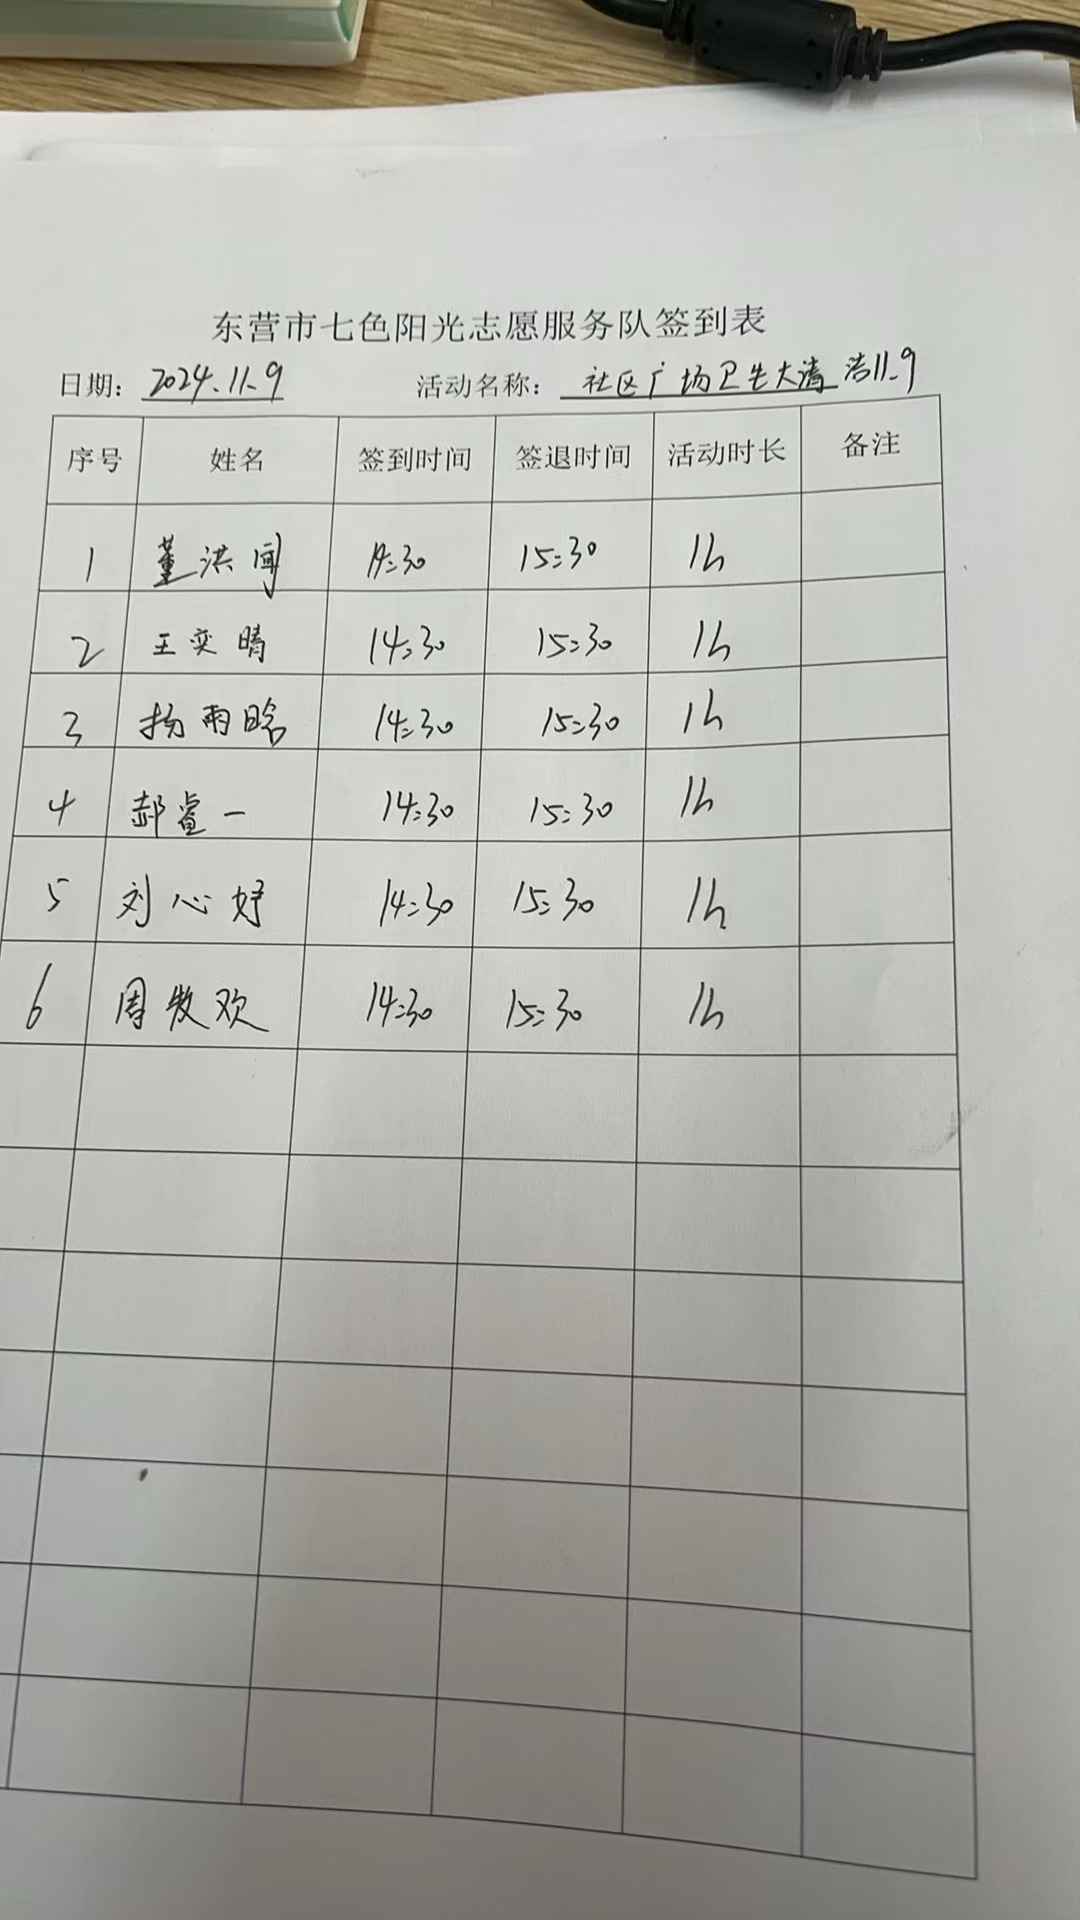 东营市七色阳光志愿服务队签到表
日期: 2024.11.9 活动名称: 社区广场卫生大清洁11.9
序号 姓名 签到时间 签退时间 活动时长 备注
1 董洪闻 14:30 15:30 1h
2 王奕晴 14:30 15:30 1h
3 杨雨晗 14:30 15:30 1h
4 郝睿一 14:30 15:30 1h
5 刘心妤 14:30 15:30 1h
6 周牧欢 14:30 15:30 1h